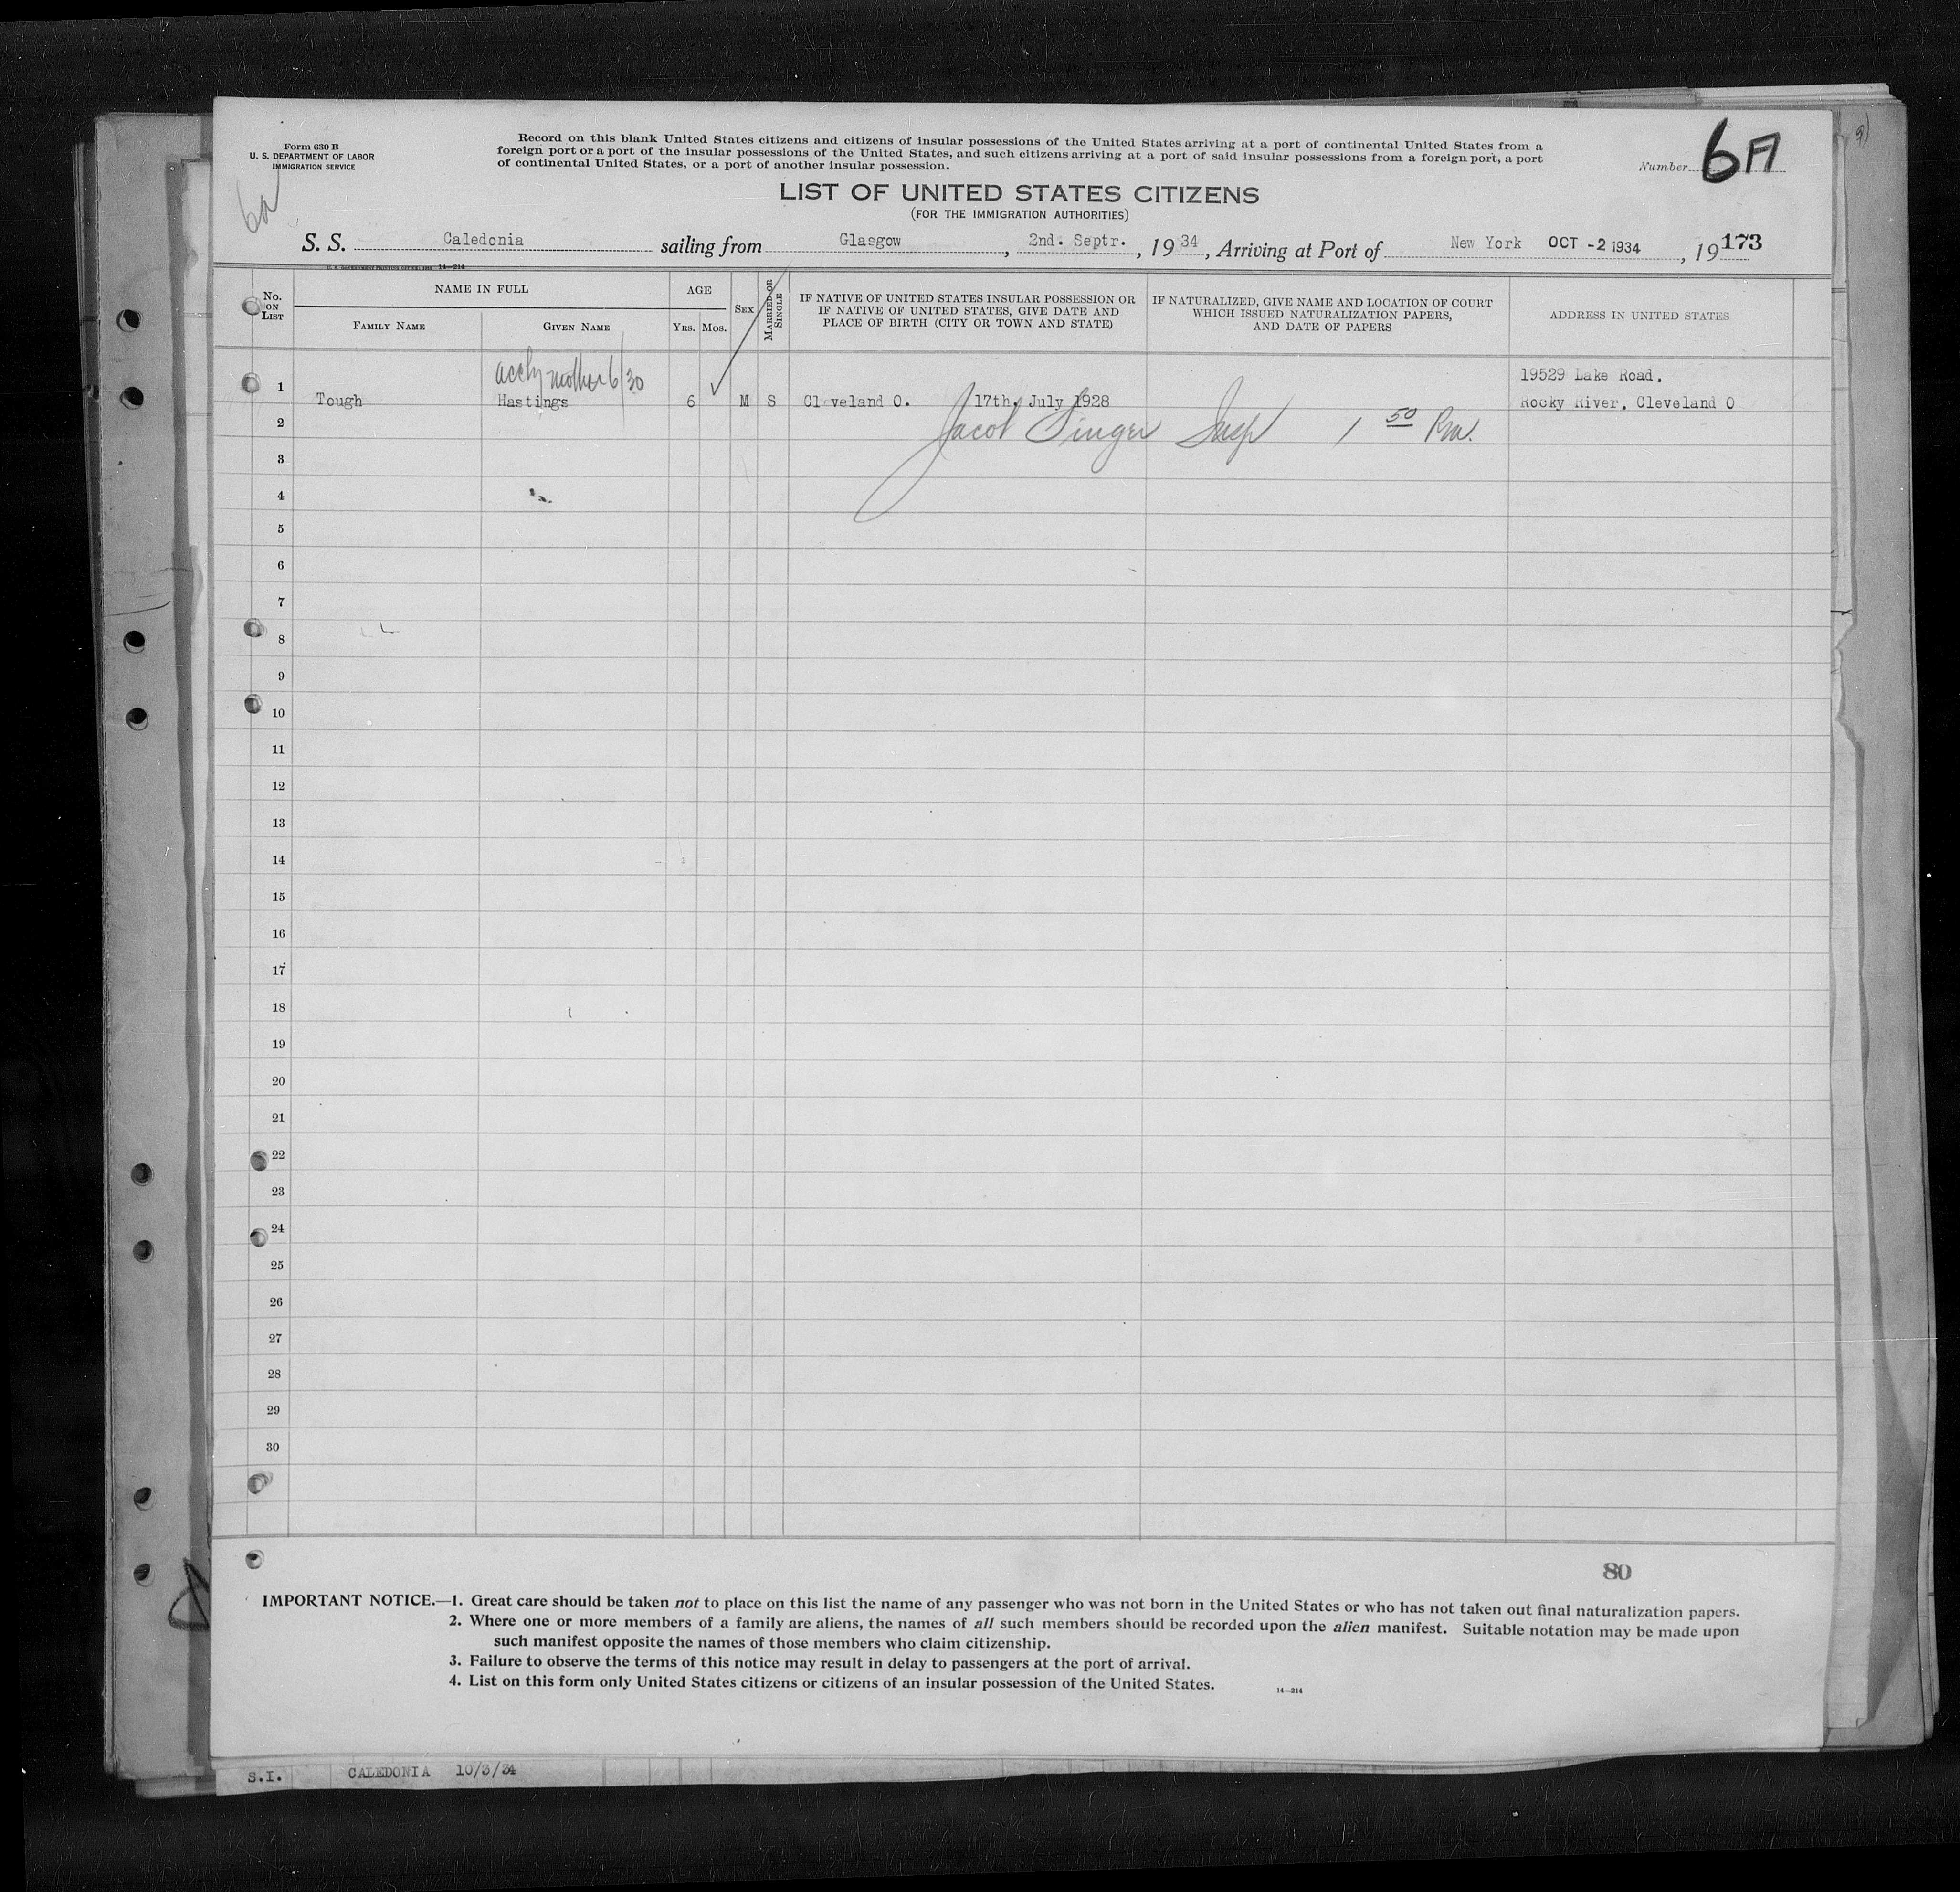 Form 630 B
U. S. DEPARTMENT OF LABOR
IMMIGRATION SERVICE
6a
Record on this blank United States citizens and citizens of insular possessions of the United States arriving at a port of continental United States from a
foreign port or a port of the insular possessions of the United States, and such citizens arriving at a port of said insular possessions from a foreign port, a port
of continental United States, or a port of another insular possession.
Number 6A
LIST OF UNITED STATES CITIZENS
(FOR THE IMMIGRATION AUTHORITIES)
S. S. Caledonia sailing from Glasgow, 2nd. Septr., 1934, Arriving at Port of New York OCT -2 1934, 19 173
U. S. GOVERNMENT PRINTING OFFICE: 14—214
No. ON LIST
NAME IN FULL
FAMILY NAME
GIVEN NAME
AGE
YRS. MOS.
SEX
MARRIED OR SINGLE
IF NATIVE OF UNITED STATES INSULAR POSSESSION OR
IF NATIVE OF UNITED STATES, GIVE DATE AND
PLACE OF BIRTH (CITY OR TOWN AND STATE)
IF NATURALIZED, GIVE NAME AND LOCATION OF COURT
WHICH ISSUED NATURALIZATION PAPERS,
AND DATE OF PAPERS
ADDRESS IN UNITED STATES
mother 6/30
19529 Lake Road.
1 Tough Hastings 6 M S Cleveland O. 17th. July 1928 Rocky River, Cleveland O
2 Jacob Singer Insp 1 50
3
4
5
6
7
8
9
10
11
12
13
14
15
16
17
18
19
20
21
22
23
24
25
26
27
28
29
30
80
IMPORTANT NOTICE.—1. Great care should be taken not to place on this list the name of any passenger who was not born in the United States or who has not taken out final naturalization papers.
2. Where one or more members of a family are aliens, the names of all such members should be recorded upon the alien manifest. Suitable notation may be made upon
such manifest opposite the names of those members who claim citizenship.
3. Failure to observe the terms of this notice may result in delay to passengers at the port of arrival.
4. List on this form only United States citizens or citizens of an insular possession of the United States. 14—214
S.I. CALEDONIA 10/3/34